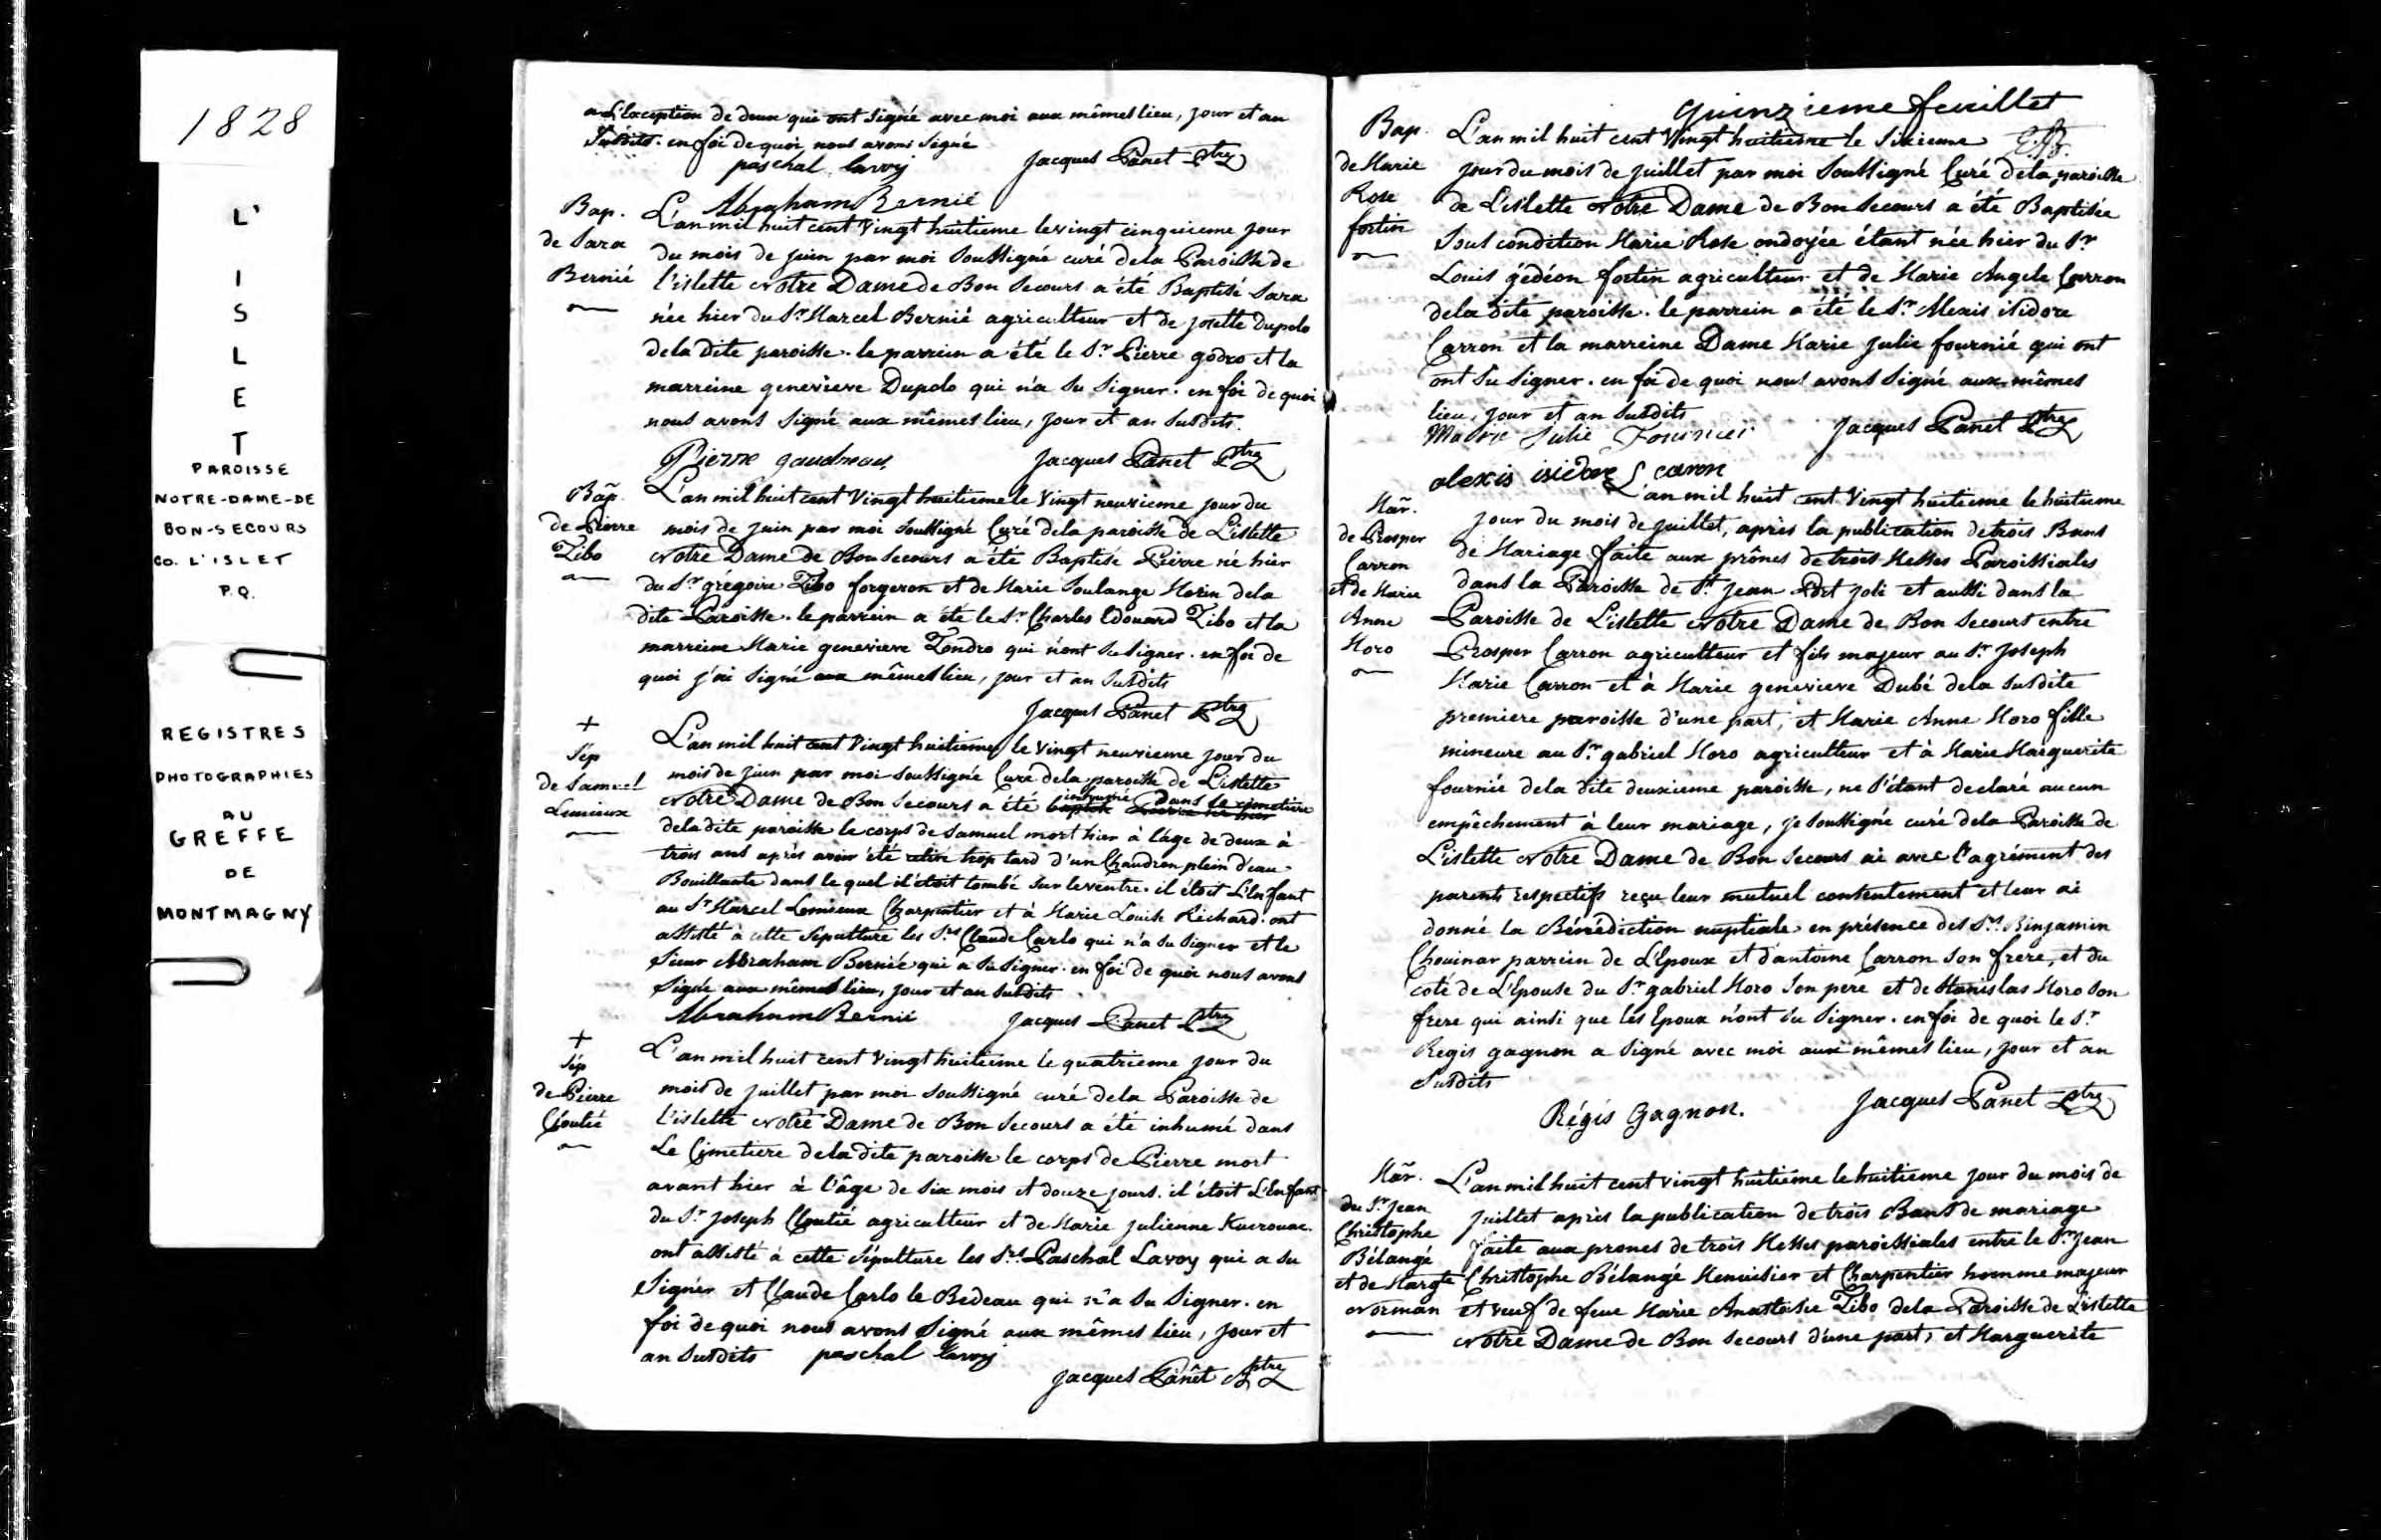 1828
L'
I
S
L
E
T
PAROISSE
NOTRE-DAME-DE
BON-SECOURS
CO. L'ISLET
P.Q.
REGISTRES
PHOTOGRAPHIES
AU
GREFFE
DE
MONTMAGNY
a L'exception de deux qui ont signé avec moi aux mêmes lieu, jour et an
susdits. en foi de quoi nous avons signé
paschal lavoy Jacques Panet Ptre
Abraham Bernié
Bap.
de Sara
Bernié
L'an mil huit cent vingt huitieme le vingt cinquieme jour
du mois de juin par moi soussigné curé de la Paroisse de
l'islette Notre Dame de Bon Secours a été Baptisé Sara
née hier du Sr Marcel Bernié agriculteur et de josette Dupolo
de la dite paroisse. le parrein a été le Sr Pierre godro et la
marreine genevieve Dupolo qui n'a su signer. en foi de quoi
nous avons signé aux mêmes lieu, jour et an susdits.
Pierre gaudreau Jacques Panet Ptre
Bap.
de Pierre
Tibo
L'an mil huit cent vingt huitieme le vingt neuvieme jour du
mois de juin par moi soussigné Curé de la paroisse de L'islette
Notre Dame de Bon Secours a été Baptisé Pierre né hier
du Sr grégoire Tibo forgeron et de Marie Soulange Morin de la
dite Paroisse. le parrein a été le Sr Charles Edouard Tibo et la
marreine Marie genevieve Tondro qui n'ont su signer. en foi de
quoi j'ai signé aux mêmes lieu, jour et an susdits
Jacques Panet Ptre
+
Sép
de Samuel
Lemieux
L'an mil huit cent vingt huitieme le vingt neuvieme jour du
mois de juin par moi soussigné Curé de la paroisse de L'islette
inhumé dans le cimetiere
Notre Dame de Bon Secours a été
de la dite paroisse le corps de Samuel mort hier à l'âge de deux à
trois ans après avoir été retiré trop tard d'un Chaudron plein d'eau
Bouillante dans le quel il étoit tombé sur le ventre. il étoit L'Enfant
au Sr Marcel Lemieux Charpentier et à Marie Louise Richard. ont
assisté à cette sépulture les Srs Claude Carlo qui n'a su signer et le
Sieur Abraham Bernié qui a su signer. en foi de quoi nous avons
signé aux mêmes lieu, jour et an susdits
Abraham Bernié Jacques Panet Ptre
+
Sép
de Pierre
Cloutié
L'an mil huit cent vingt huitieme le quatrieme jour du
mois de juillet par moi soussigné curé de la Paroisse de
l'islette Notre Dame de Bon Secours a été inhumé dans
Le Cimetiere de la dite paroisse le corps de Pierre mort
avant hier à l'âge de six mois et douze jours. il étoit L'Enfant
du Sr Joseph Cloutié agriculteur et de Marie julienne Kuerouac.
ont assisté à cette sépulture les Srs Paschal Lavoy qui a su
signer et Claude Carlo le Bedeau qui n'a su signer. en
foi de quoi nous avons signé aux mêmes lieu, jour et
an susdits paschal lavoy
Jacques Panet Ptre
quinzieme feuillet
Bap.
de Marie
Rose
fortin
L'an mil huit cent vingt huitieme le sixieme
jour du mois de juillet par moi soussigné Curé de la paroisse
de L'islette Notre Dame de Bon Secours a été Baptisée
sous condition Marie Rose ondoyée étant née hier du Sr
Louis gédéon fortin agriculteur et de Marie Angele Carron
de la dite paroisse. le parrein a été le Sr Alexis isidore
Carron et la marreine Dame Marie julie fournié qui ont
ont su signer. en foi de quoi nous avons signé aux mêmes
lieu, jour et an susdits
Marie Julie Fournier Jacques Panet Ptre
alexis isidore caron
Mar.
de Prosper
Carron
et de Marie
Anne
Moro
L'an mil huit cent vingt huitieme le huitieme
jour du mois de juillet, après la publication de trois Bans
de Mariage faite aux prônes de trois Messes Paroissiales
dans la Paroisse de St Jean Port joli et aussi dans la
Paroisse de L'islette Notre Dame de Bon Secours entre
Prosper Carron agriculteur et fils majeur au Sr Joseph
Marie Carron et à Marie genevieve Dubé de la susdite
premiere paroisse d'une part, et Marie Anne Moro fille
mineure au Sr gabriel Moro agriculteur et à Marie Marguerite
fournié de la dite deuxieme paroisse, ne s'étant declaré aucun
empêchement à leur mariage, je soussigné curé de la Paroisse de
L'islette Notre Dame de Bon Secours ai avec l'agrément des
parents respectifs reçu leur mutuel consentement et leur ai
donné la Bénédiction nuptiale en présence des Srs Binjamin
Chouinar parrein de L'Epoux et d'antoine Carron son frere, et du
coté de L'Epouse du Sr gabriel Moro son pere et de Stanislas Moro son
frere qui ainsi que les Epoux n'ont su signer. en foi de quoi le Sr
Régis gagnon a signé avec moi aux mêmes lieu, jour et an
susdits
Régis Gagnon. Jacques Panet Ptre
Mar.
du Sr Jean
Christophe
Bélangé
et de Margte
Norman
L'an mil huit cent vingt huitieme le huitieme jour du mois de
juillet après la publication de trois Bans de mariage
faite aux prones de trois Messes paroissiales entre le Sr Jean
Christophe Bélangé Menuisier et Charpentier homme majeur
et veuf de feue Marie Anastasie Tibo de la Paroisse de L'islette
Notre Dame de Bon Secours d'une part, et Marguerite